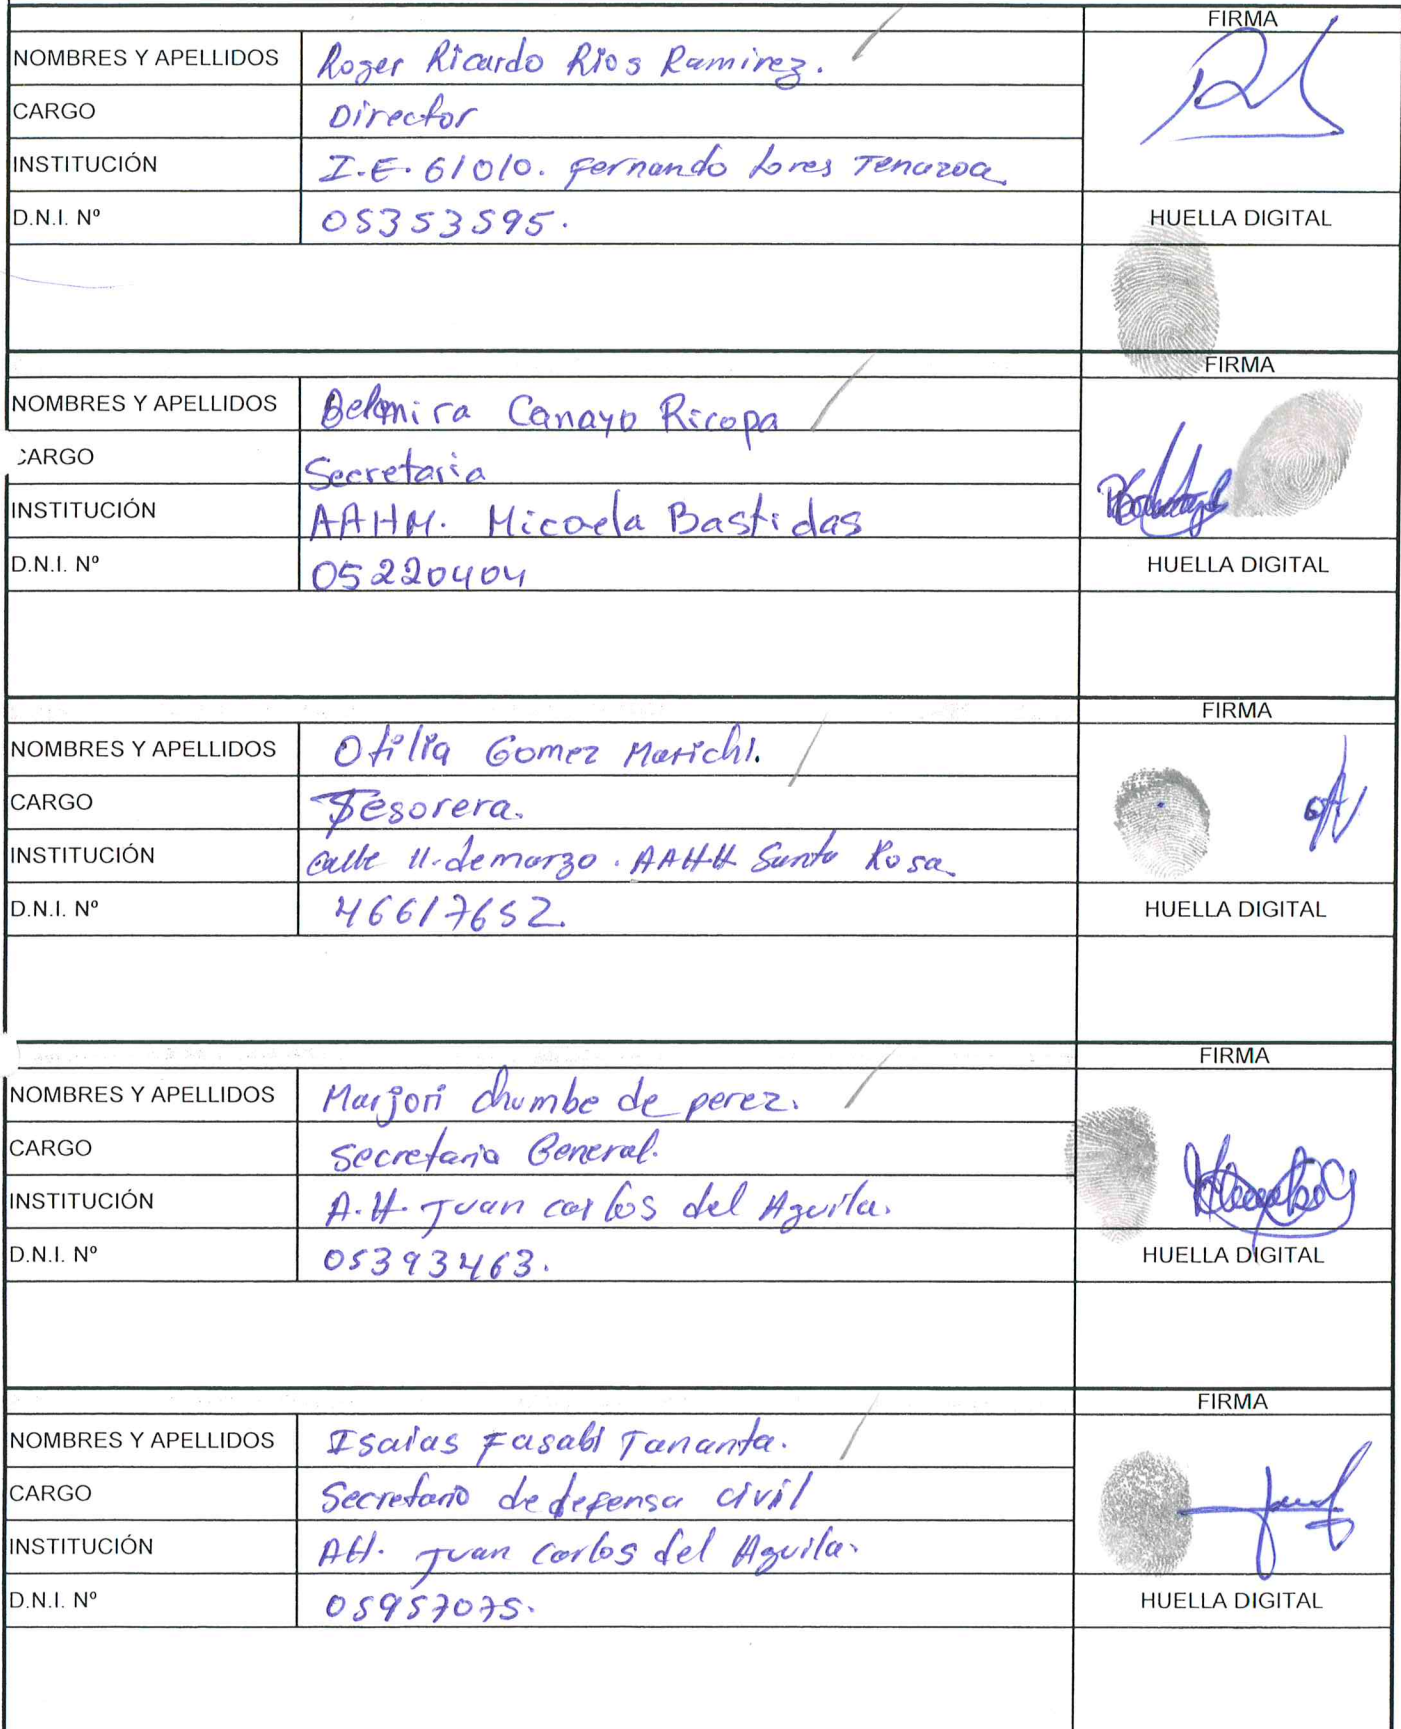 FIRMA
NOMBRES Y APELLIDOS Roger Ricardo Rios Ramirez.
CARGO Director
INSTITUCIÓN I.E. 61010. Fernando Lores Tenazoa
D.N.I. Nº 05353595. HUELLA DIGITAL
FIRMA
NOMBRES Y APELLIDOS Belmira Canayo Ricopa
CARGO Secretaria
INSTITUCIÓN AAHM. Micaela Bastidas
D.N.I. Nº 05220404 HUELLA DIGITAL
FIRMA
NOMBRES Y APELLIDOS Ofilia Gomez Marichi.
CARGO Tesorera.
INSTITUCIÓN calle 11. de marzo. AAHH Santa Rosa
D.N.I. Nº 46617652. HUELLA DIGITAL
FIRMA
NOMBRES Y APELLIDOS Marjori chumbe de perez.
CARGO Secretaria General.
INSTITUCIÓN A.H. Juan carlos del Aguila.
D.N.I. Nº 05393463. HUELLA DIGITAL
FIRMA
NOMBRES Y APELLIDOS Isaias Fasabi Tananta.
CARGO Secretario de defensa civil
INSTITUCIÓN AH. Juan Carlos del Aguila.
D.N.I. Nº 05957075. HUELLA DIGITAL